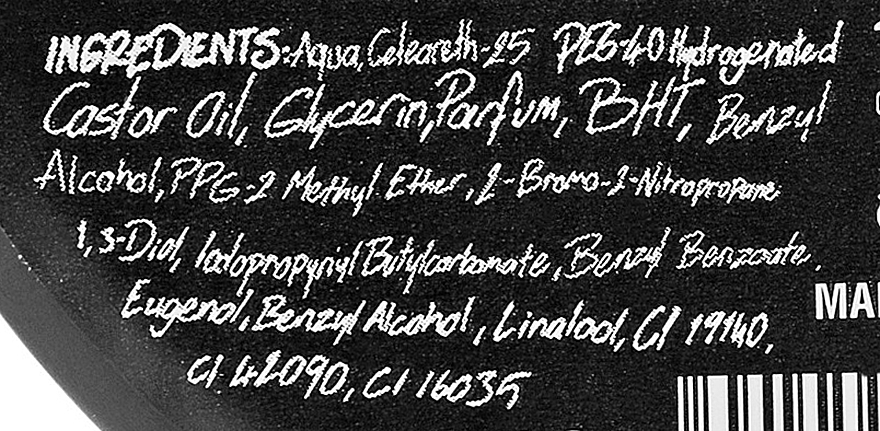 INGREDIENTS: Aqua, Ceteareth-25 PEG-40 Hydrogenated
Castor Oil, Glycerin, Parfum, BHT, Benzyl
Alcohol, PPG-2 Methyl Ether, 2-Bromo-2-Nitropropane
1,3-Diol, Iodopropynyl Butylcarbamate, Benzyl Benzoate,
Eugenol, Benzyl Alcohol, Linalool, CI 19140,
CI 42090, CI 16035
MA